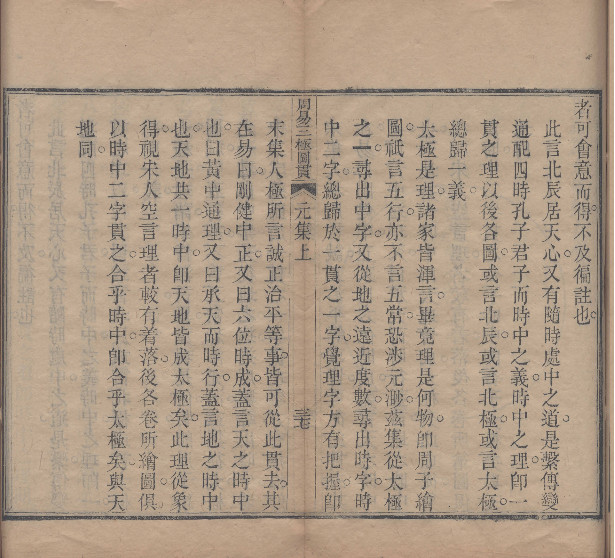 者可會意而得不及徧註也
此言北辰居天心又有隨時處中之道是繫傳變
通配四時孔子君子而時中之義時中之理卽一
貫之理以後各圖或言北辰或言北極或言太極
總歸一義
太極是理諸家皆渾言畢竟理是何物卽周子繪
圖祇言五行亦不言五常恐涉元渺茲集從太極
之一尋出中字又從地之遠近度數尋出時字時
中二字總歸於一貫之一字覺理字方有把握卽
周易三極圖貫 元集上 三七
末集人極所言誠正治平等事皆可從此貫去其
在易曰剛健中正又曰六位時成蓋言天之時中
也曰黃中通理又曰承天而時行蓋言地之時中
也天地共一時中卽天地皆成太極矣此理從象
得視宋人空言理者較有着落後各卷所繪圖俱
以時中二字貫之合乎時中卽合乎太極矣與天
地同